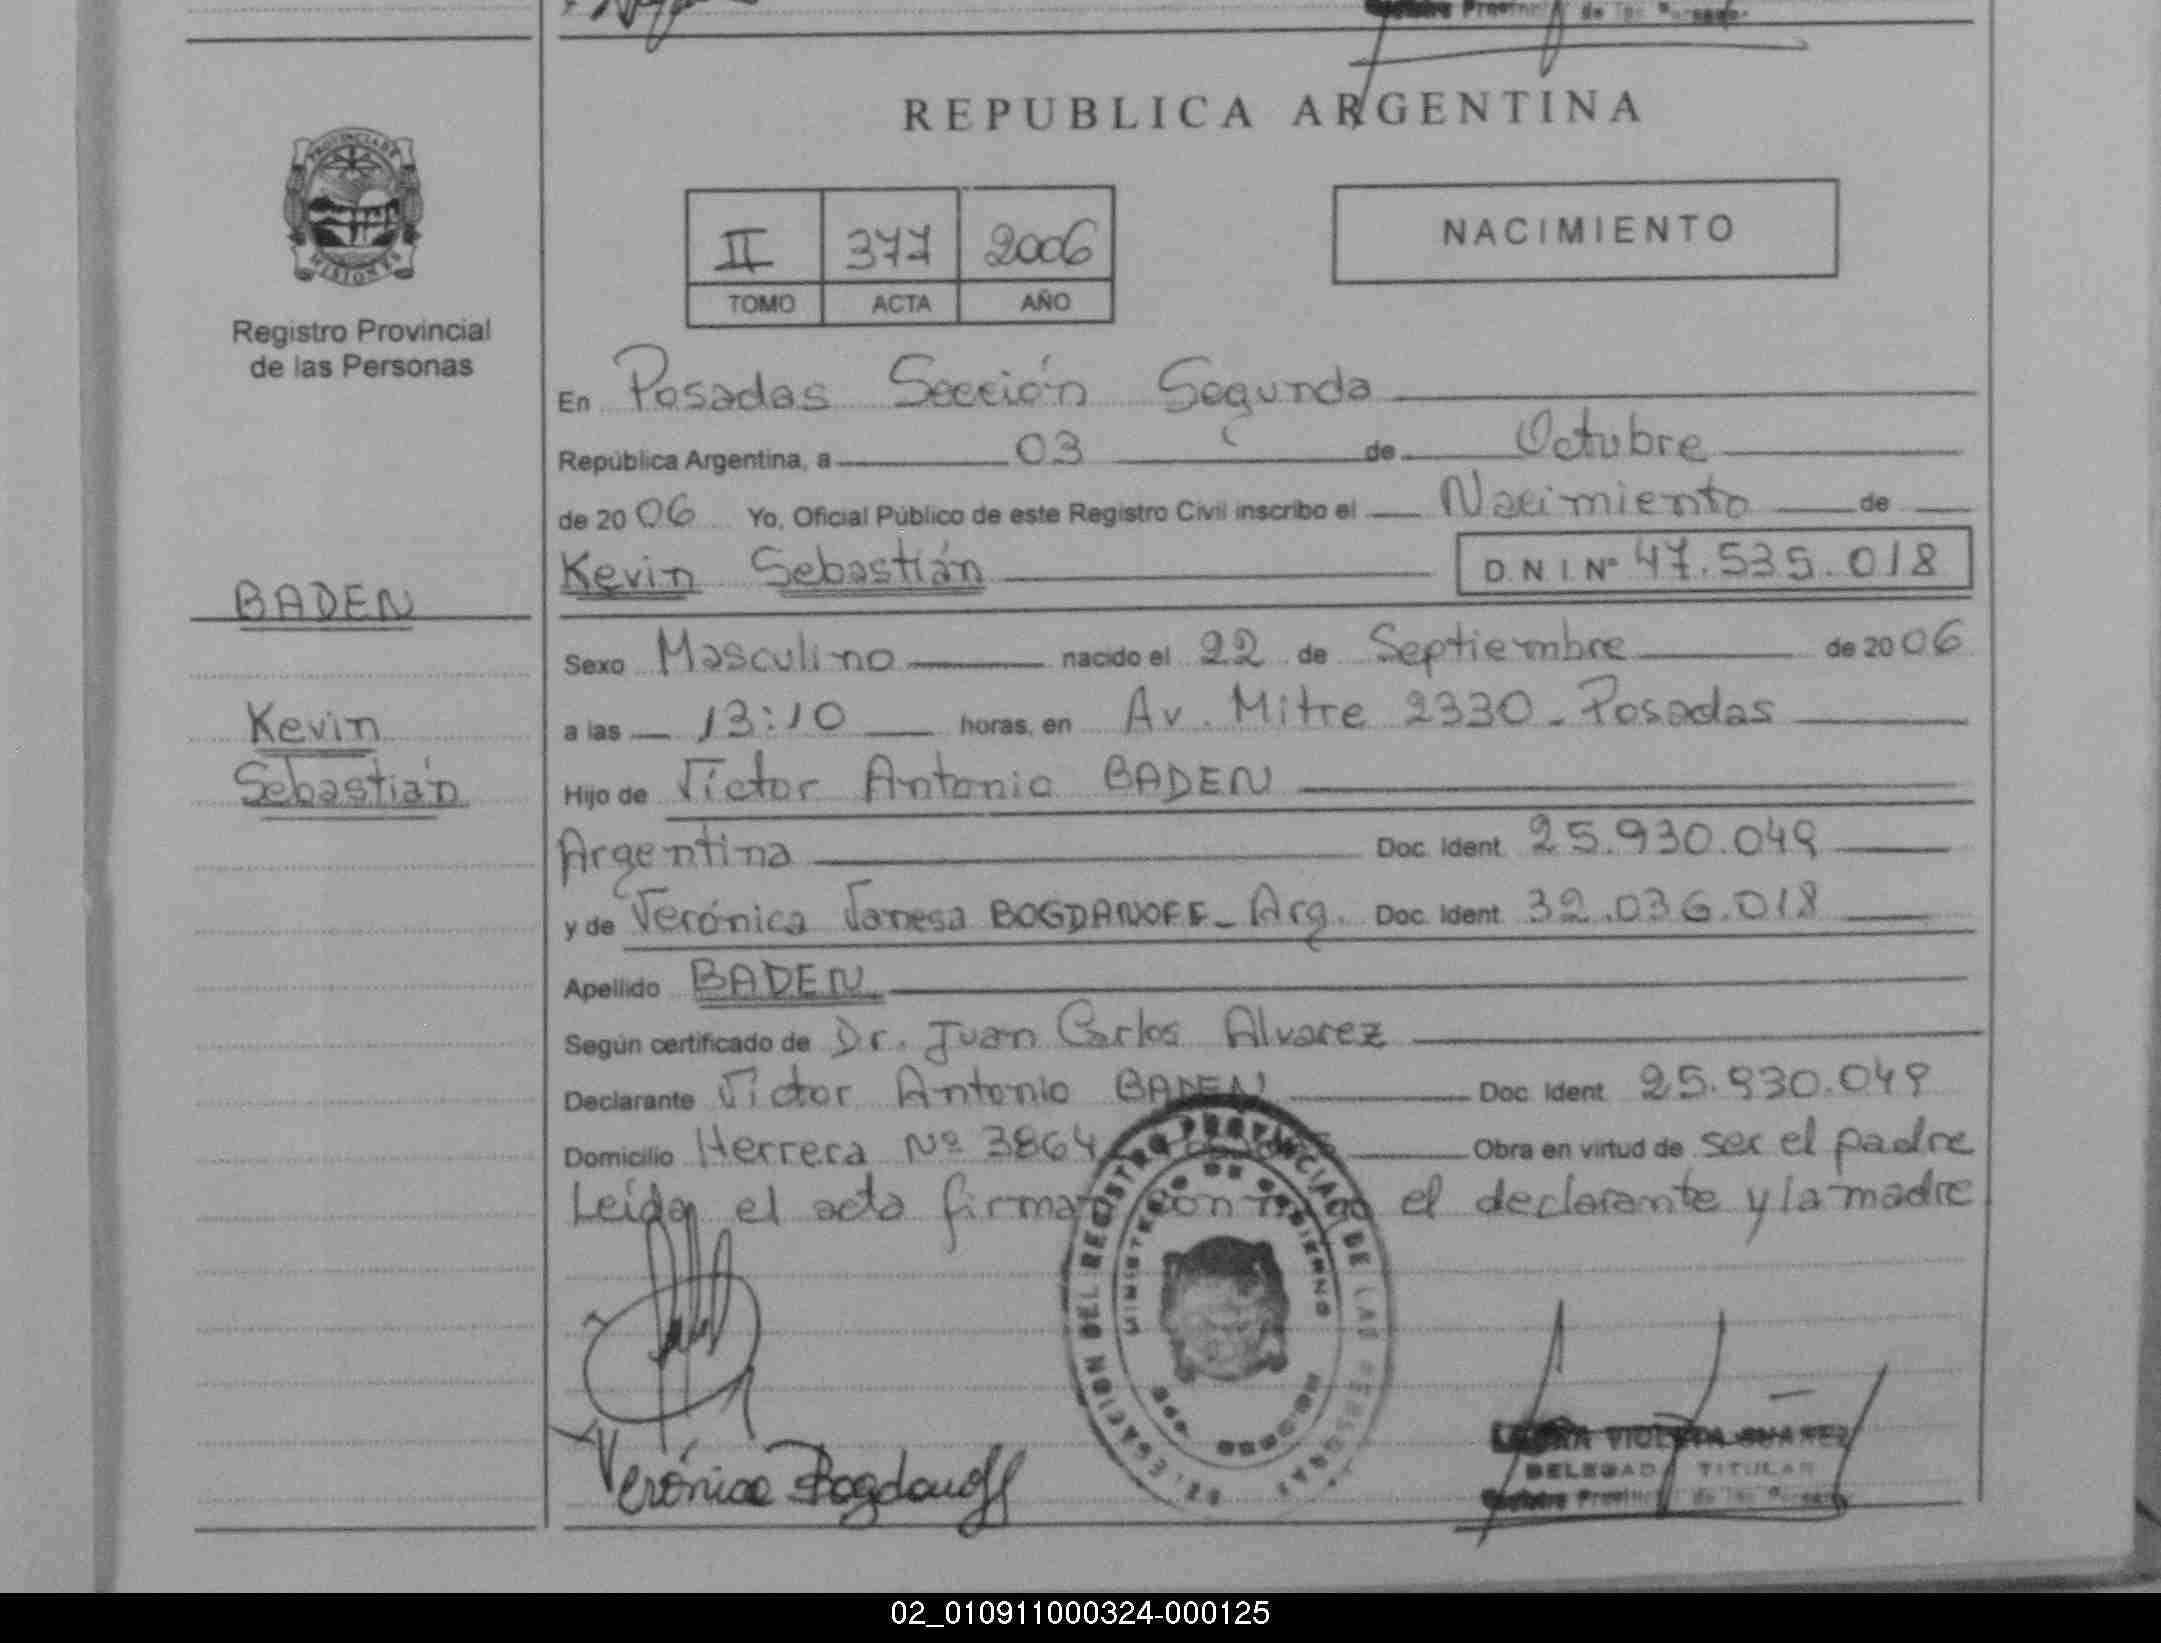 REPUBLICA ARGENTINA
PROVINCIA DE
MISIONES
Registro Provincial
de las Personas
II 377 2006
TOMO ACTA AÑO
NACIMIENTO
En Posadas Sección Segunda
República Argentina, a 03 de Octubre
de 2006 Yo, Oficial Público de este Registro Civil inscribo el Nacimiento de
Kevin Sebastián D.N.I.Nº 47.535.018
BADEN
Kevin
Sebastián
Sexo Masculino nacido el 22 de Septiembre de 2006
a las 13:10 horas, en Av. Mitre 2330 - Posadas
Hijo de Víctor Antonio BADEN
Argentina Doc. Ident. 25.930.049
y de Verónica Vanesa BOGDANOFF - Arg. Doc. Ident. 32.036.018
Apellido BADEN
Según certificado de Dr. Juan Carlos Alvarez
Declarante Víctor Antonio BADEN Doc. Ident. 25.930.049
Domicilio Herrera Nº 3864 Obra en virtud de ser el padre
Leída el acta firman conmigo el declarante y la madre
DELEGACION DEL REGISTRO PROVINCIAL DE LAS PERSONAS
MINISTERIO DE GOBIERNO
Verónica Bogdanoff
VIOLETA SUAREZ
DELEGADA TITULAR
02_010911000324-000125